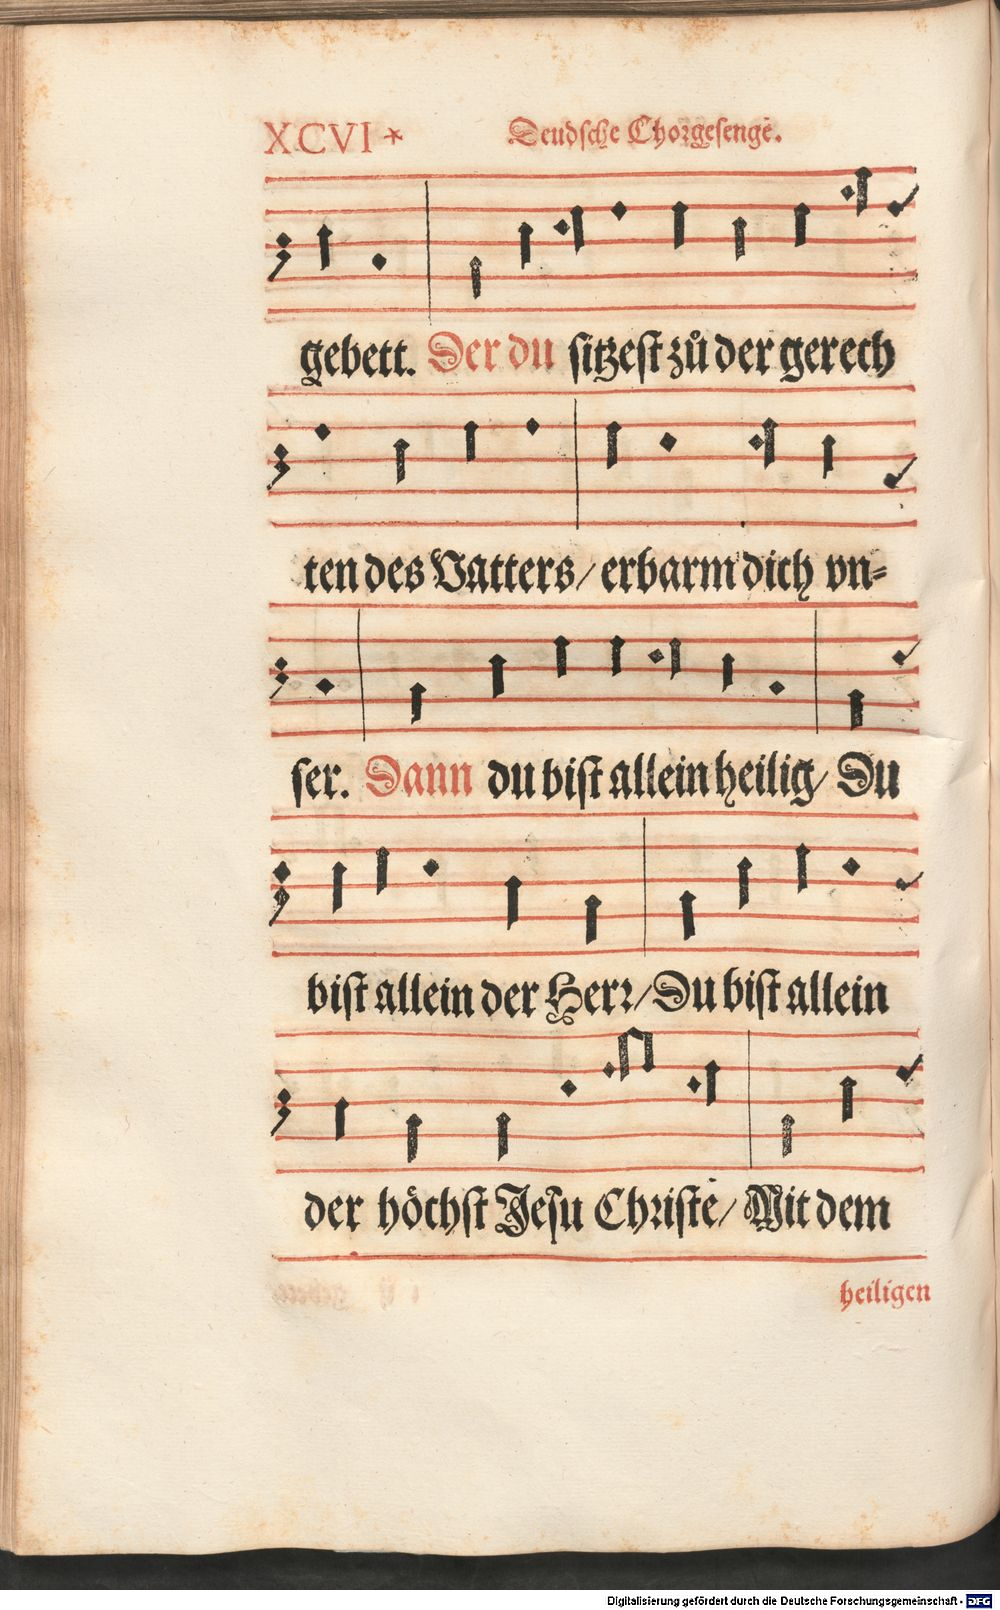 XCVI * Deudsche Chorgesenge.
gebett. Der du sitzest zů der gerech
ten des Vatters/ erbarm dich vn-
ser. Dann du bist allein heilig/ Du
bist allein der Herr/ Du bist allein
der höchst Jesu Christe/ Mit dem
heiligen
Digitalisierung gefördert durch die Deutsche Forschungsgemeinschaft - DFG